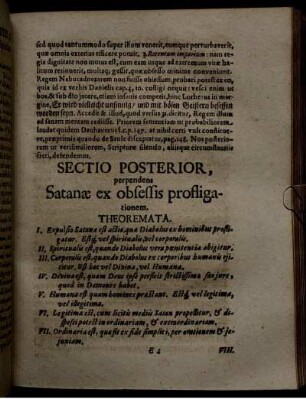 sed quod tantummodo super illum venerit, eumque perturbaverit,
quæ omnia exterius efficere potuit. 3. Recentem imperium: nam re-
gis dignitate non motus est, cum eum usque ad extremum vitæ ha-
bitum retinuerit, multaq; gessit, quæ obsesso minime conveniunt.
Regem Nebucadnezarem non fuisse obsessum, probari potest ex eo,
quia id ex verbis Danielis cap. 4. colligi nequit: vesci enim ut
bos, & sub dio jacere, etiam insanis competit, hinc Lutherus in mar-
gine, Er wird vielleicht unsinnig / und mit bösen Geistern besessen
worden seyn. Accedit illud, quod versu 31. dicitur, Regem illum
ad sanam mentem rediisse. Priorem sententiam ut probabiliorem,
laudat quidem Danhauerus
rum ut verisimiliorem, Scripturæ silentio, aliisque circumstantiis
freti, defendemus.
SECTIO POSTERIOR,
perpendens
Satanæ ex obsessis profliga-
tionem.
THEOREMATA.
I. Expulsio Satanæ est actio, quâ Diabolus ex hominibus profli-
gatur. Estq; vel spiritualis, vel corporalis.
II. Spiritualis est, quando Diabolus vera pœnitentia abigitur.
III. Corporalis est, quando Diabolus ex corporibus humanis eji-
citur. Est hæc vel Divina, vel Humana.
IV. Divina est, quam Deus ipse perficit strictissimo suo jure,
quod in Dæmones habet.
V. Humana est quam homines præstant. Estq; vel legitima,
vel illegitima.
VI. Legitima est, cum licitis mediis Satan propellitur, &
dispesci potest in ordinariam, & extraordinariam.
VII. Ordinaria est, quæ fit ex fide simplici, per orationem & je-
junium.
E 2 VIII.